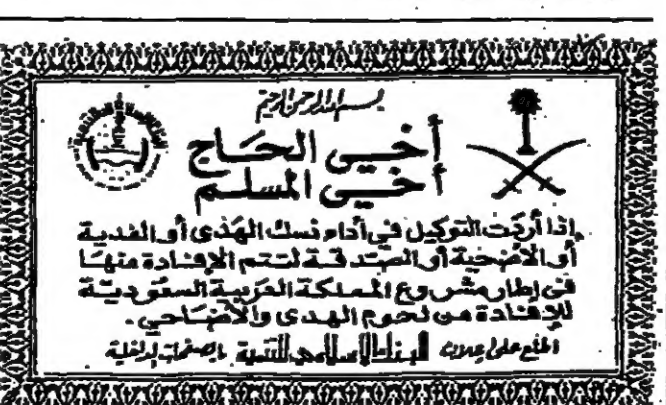 بسم الله الرحمن الرحيم
أخي الحاج
أخي المسلم
إذا أردت التوكيل في أداء نسك الهَدْي أو الفدية
أو الأضحية أو الصدقة لتتم الإفادة منها
في إطار مشروع المملكة العربية السعودية
للإفادة من لحوم الهدي والأضاحي.
اطلع على إعلان البنك الإسلامي للتنمية بالصفحات الداخلية